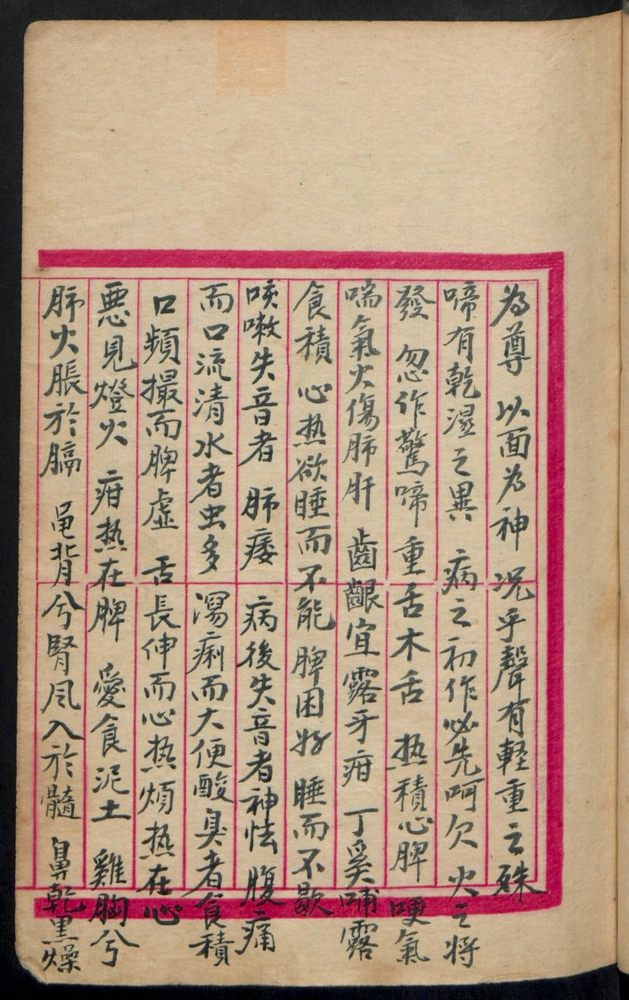 為尊 以面為神 况乎聲有軽重之殊
啼有乾濕之異 病之初作必先呵欠 火之将
發 忽作驚啼 重舌木舌 热積心脾 哽氣
喘氣火傷肺肝 齒齦宜露牙疳 丁奚哺露
食積 心热欲睡而不能 脾困好睡而不歇
咳嗽失音者 肺痿 病後失音者神怯 腹痛
而口流清水者虫多 瀉痢而大便酸臭者食積
口頻撮而脾虚 舌長伸而心热 煩热在心
惡見燈火 疳热在脾 愛食泥土 雞胸兮
肺火脹於膈 龟背兮腎风入於髓 鼻乾黑燥